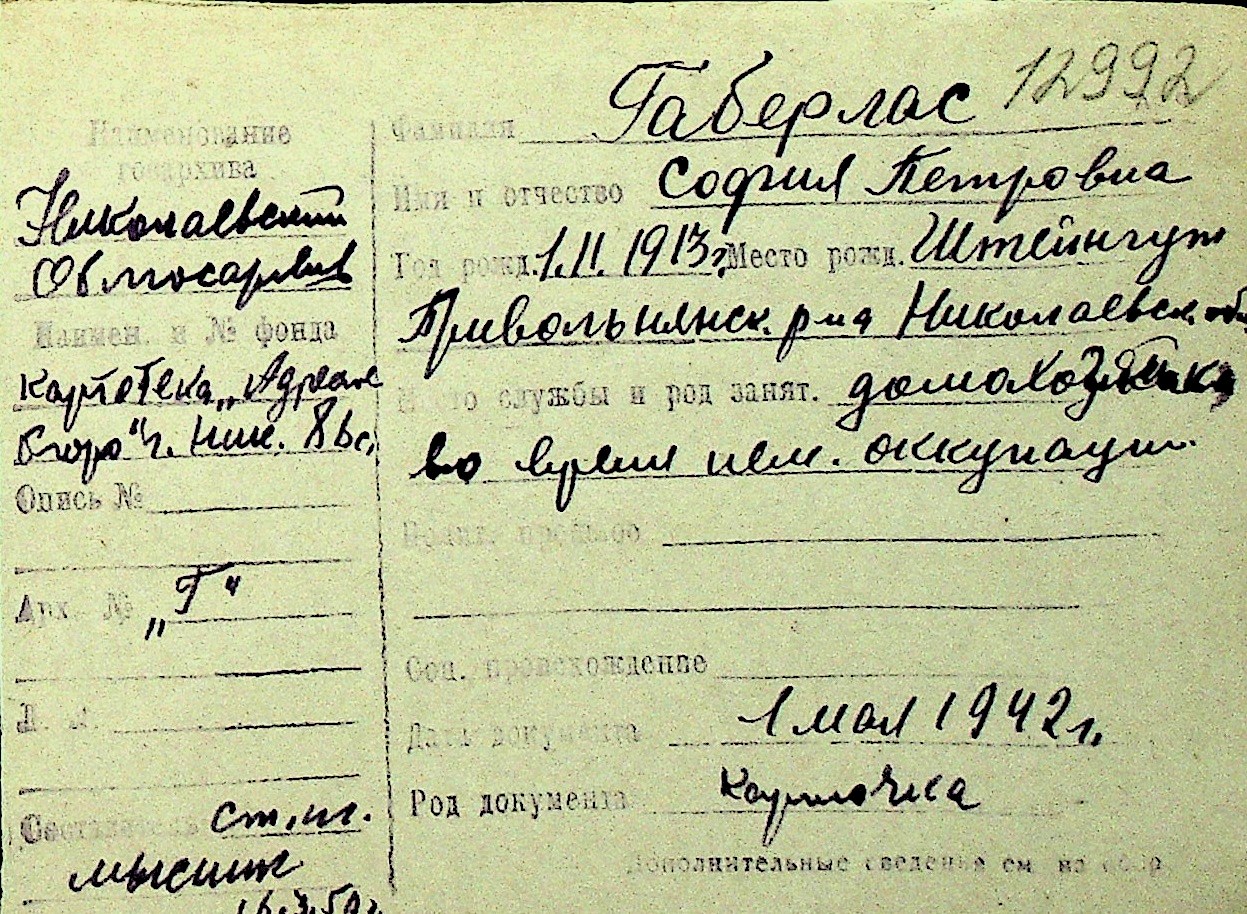 12992
Наименование
госархива
Николаевский
Облгосархив
Наимен. и № фонда
картотека „Адресн.
бюро" г. Ник.
Опись №
Арх. № „Г"
Л. л.
Составитель ст.
16.X.50г.
Фамилия Габерлас
Имя и отчество София Петровна
Год рожд. 1.II.1913г. Место рожд. Штейнгут
Привольнянск. р-на Николаевск. обл.
Место службы и род занят. домохозяйка
во время нем. оккупации.
Полит. прошлое
Соц. происхождение
Дата документа 1 мая 1942г.
Род документа карточка
Дополнительные сведения см. на обор.